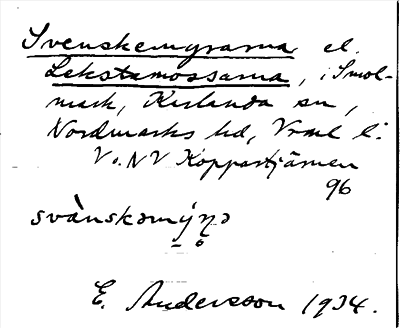 Svenskemyrarna el.
Lekstamossarna, i Smol-
mark, Kurlanda sn,
Nordmarks hd, Vrml l:
V o. NV Koppartjärnen
96
svànskəmý̭ɳə
E. Andersson 1934.